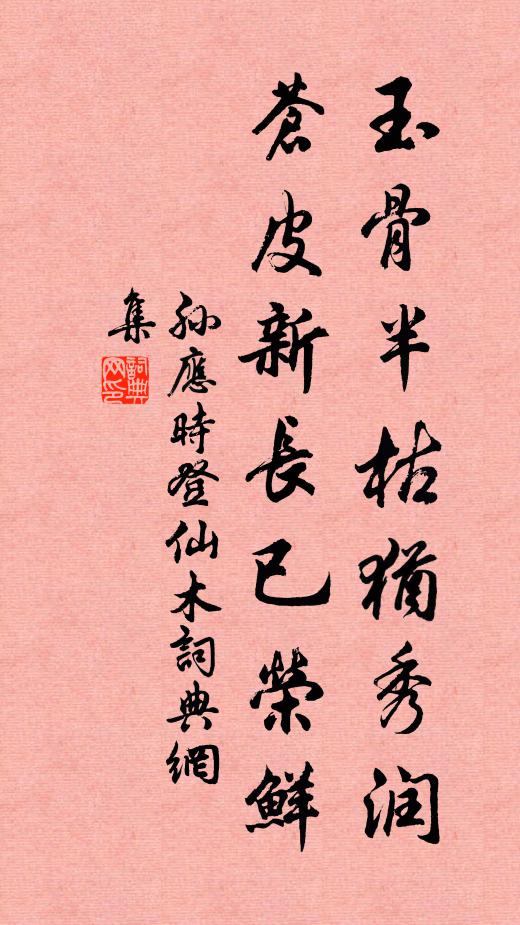 玉骨半枯猶秀润
蒼皮新長已榮鮮
孙應時登仙木詞典網
集
詞典
网印